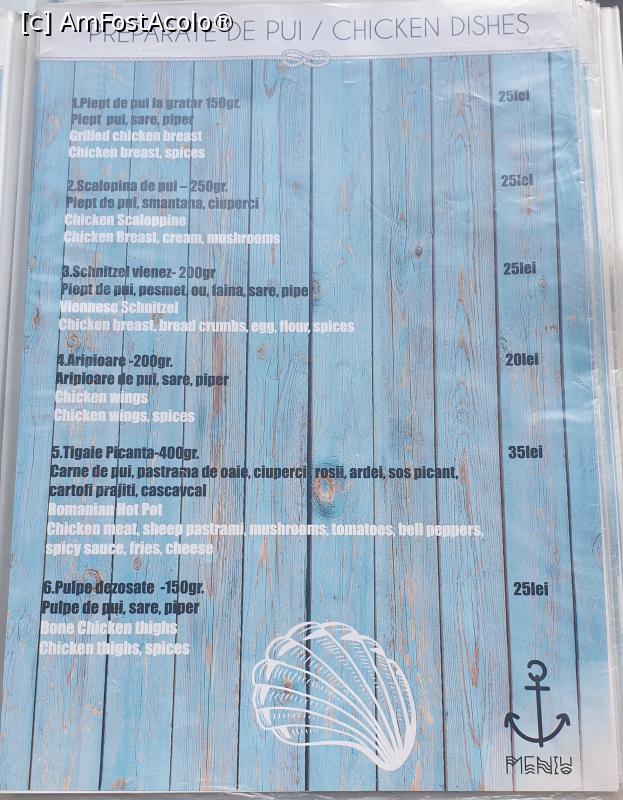 [c] AmFostAcolo®
PREPARATE DE PUI / CHICKEN DISHES
1.Piept de pui la gratar 150gr. 25lei
Piept pui, sare, piper
Grilled chicken breast
Chicken breast, spices
2.Scalopina de pui – 250gr. 25lei
Piept de pui, smantana, ciuperci
Chicken Scaloppine
Chicken Breast, cream, mushrooms
3.Schnitzel vienez- 200gr 25lei
Piept de pui, pesmet, ou, faina, sare, piper
Viennese Schnitzel
Chicken breast, bread crumbs, egg, flour, spices
4.Aripioare -200gr. 20lei
Aripioare de pui, sare, piper
Chicken wings
Chicken wings, spices
5.Tigaie Picanta-400gr. 35lei
Carne de pui, pastrama de oaie, ciuperci, rosii, ardei, sos picant,
cartofi prajiti, cascaval
Romanian Hot Pot
Chicken meat, sheep pastrami, mushrooms, tomatoes, bell peppers,
spicy sauce, fries, cheese
6.Pulpe dezosate -150gr. 25lei
Pulpe de pui, sare, piper
Bone Chicken thighs
Chicken thighs, spices
MENIU